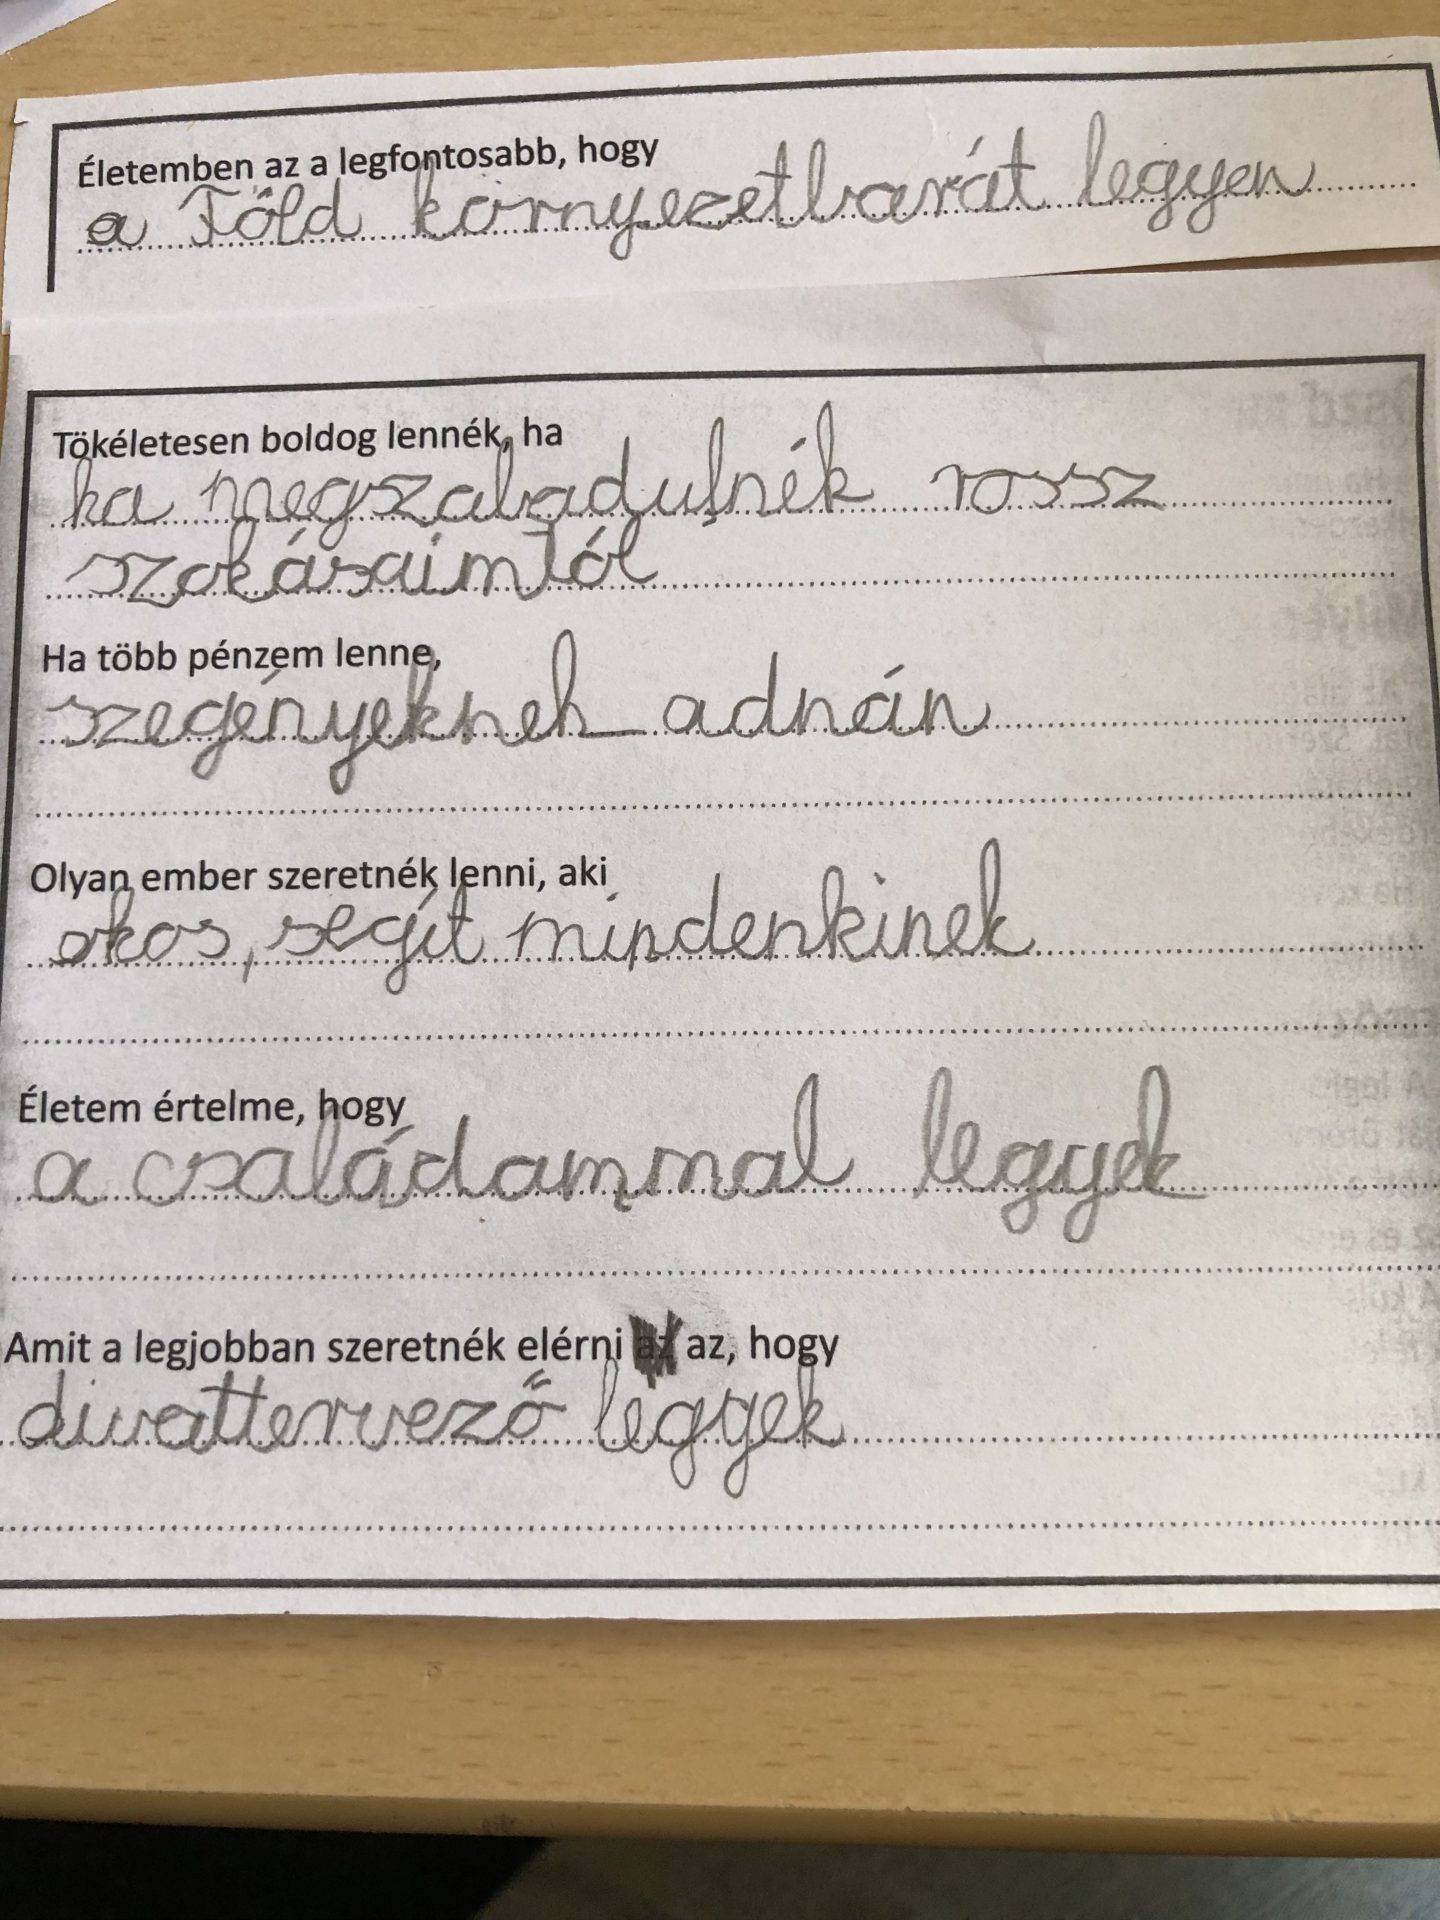 Életemben az a legfontosabb, hogy
a Föld környezetbarát legyen
Tökéletesen boldog lennék, ha
ha megszabadulnék rossz
szokásaimtól
Ha több pénzem lenne,
szegényeknek adnán
Olyan ember szeretnék lenni, aki
okos, segít mindenkinek
Életem értelme, hogy
a családammal legyek
Amit a legjobban szeretnék elérni az az, hogy
divattervező legyek